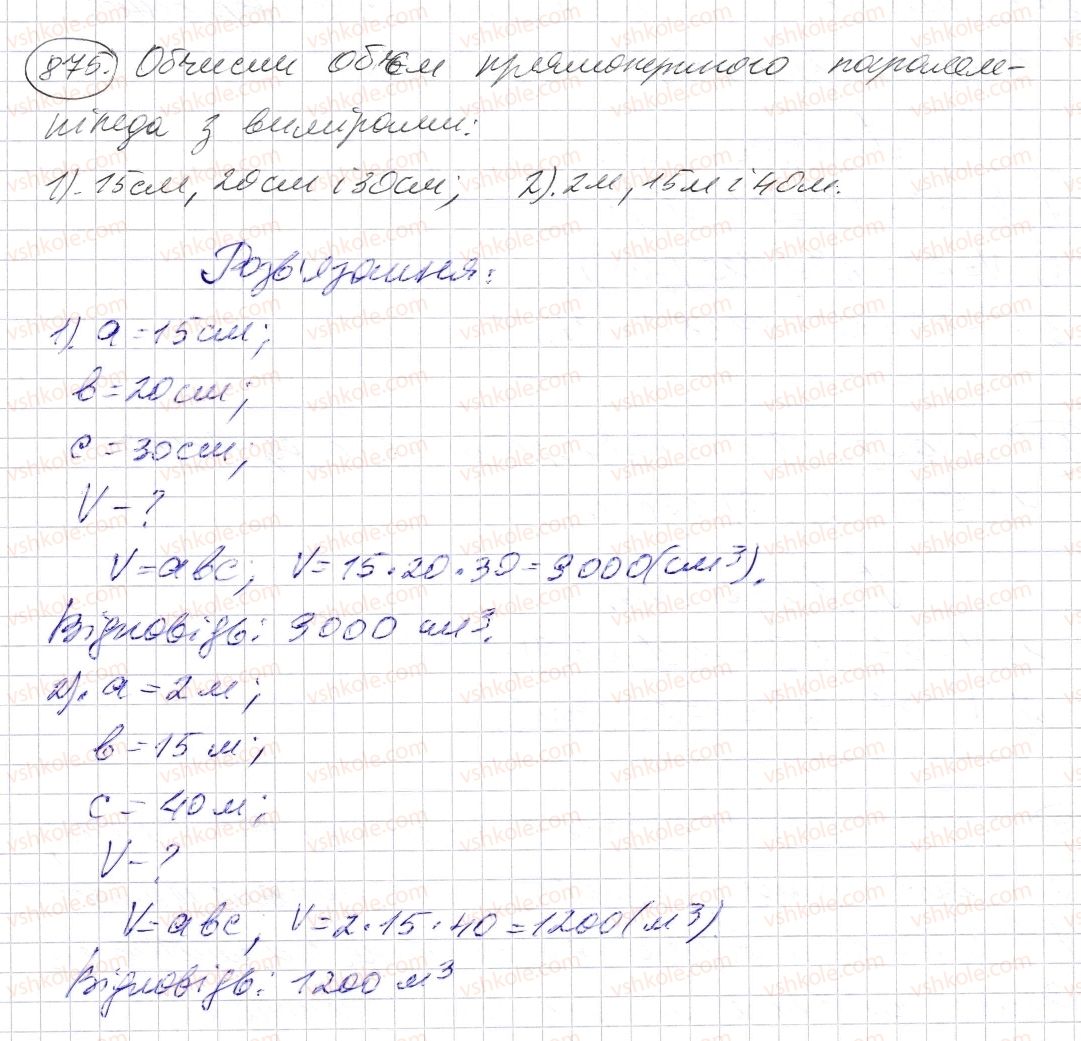 875. Обчисли об'єм прямокутного паралеле-
піпеда з вимірами:
1). 15см, 20см і 30см; 2). 2м, 15м і 40м.
Розв'язання:
1). a = 15см;
в = 20см;
c = 30см;
V - ?
V = aвc; V = 15·20·30 = 9000(см³).
Відповідь: 9000 см³.
2). a = 2м;
в = 15м;
c = 40м;
V - ?
V = aвc; V = 2·15·40 = 1200(м³)
Відповідь: 1200 м³